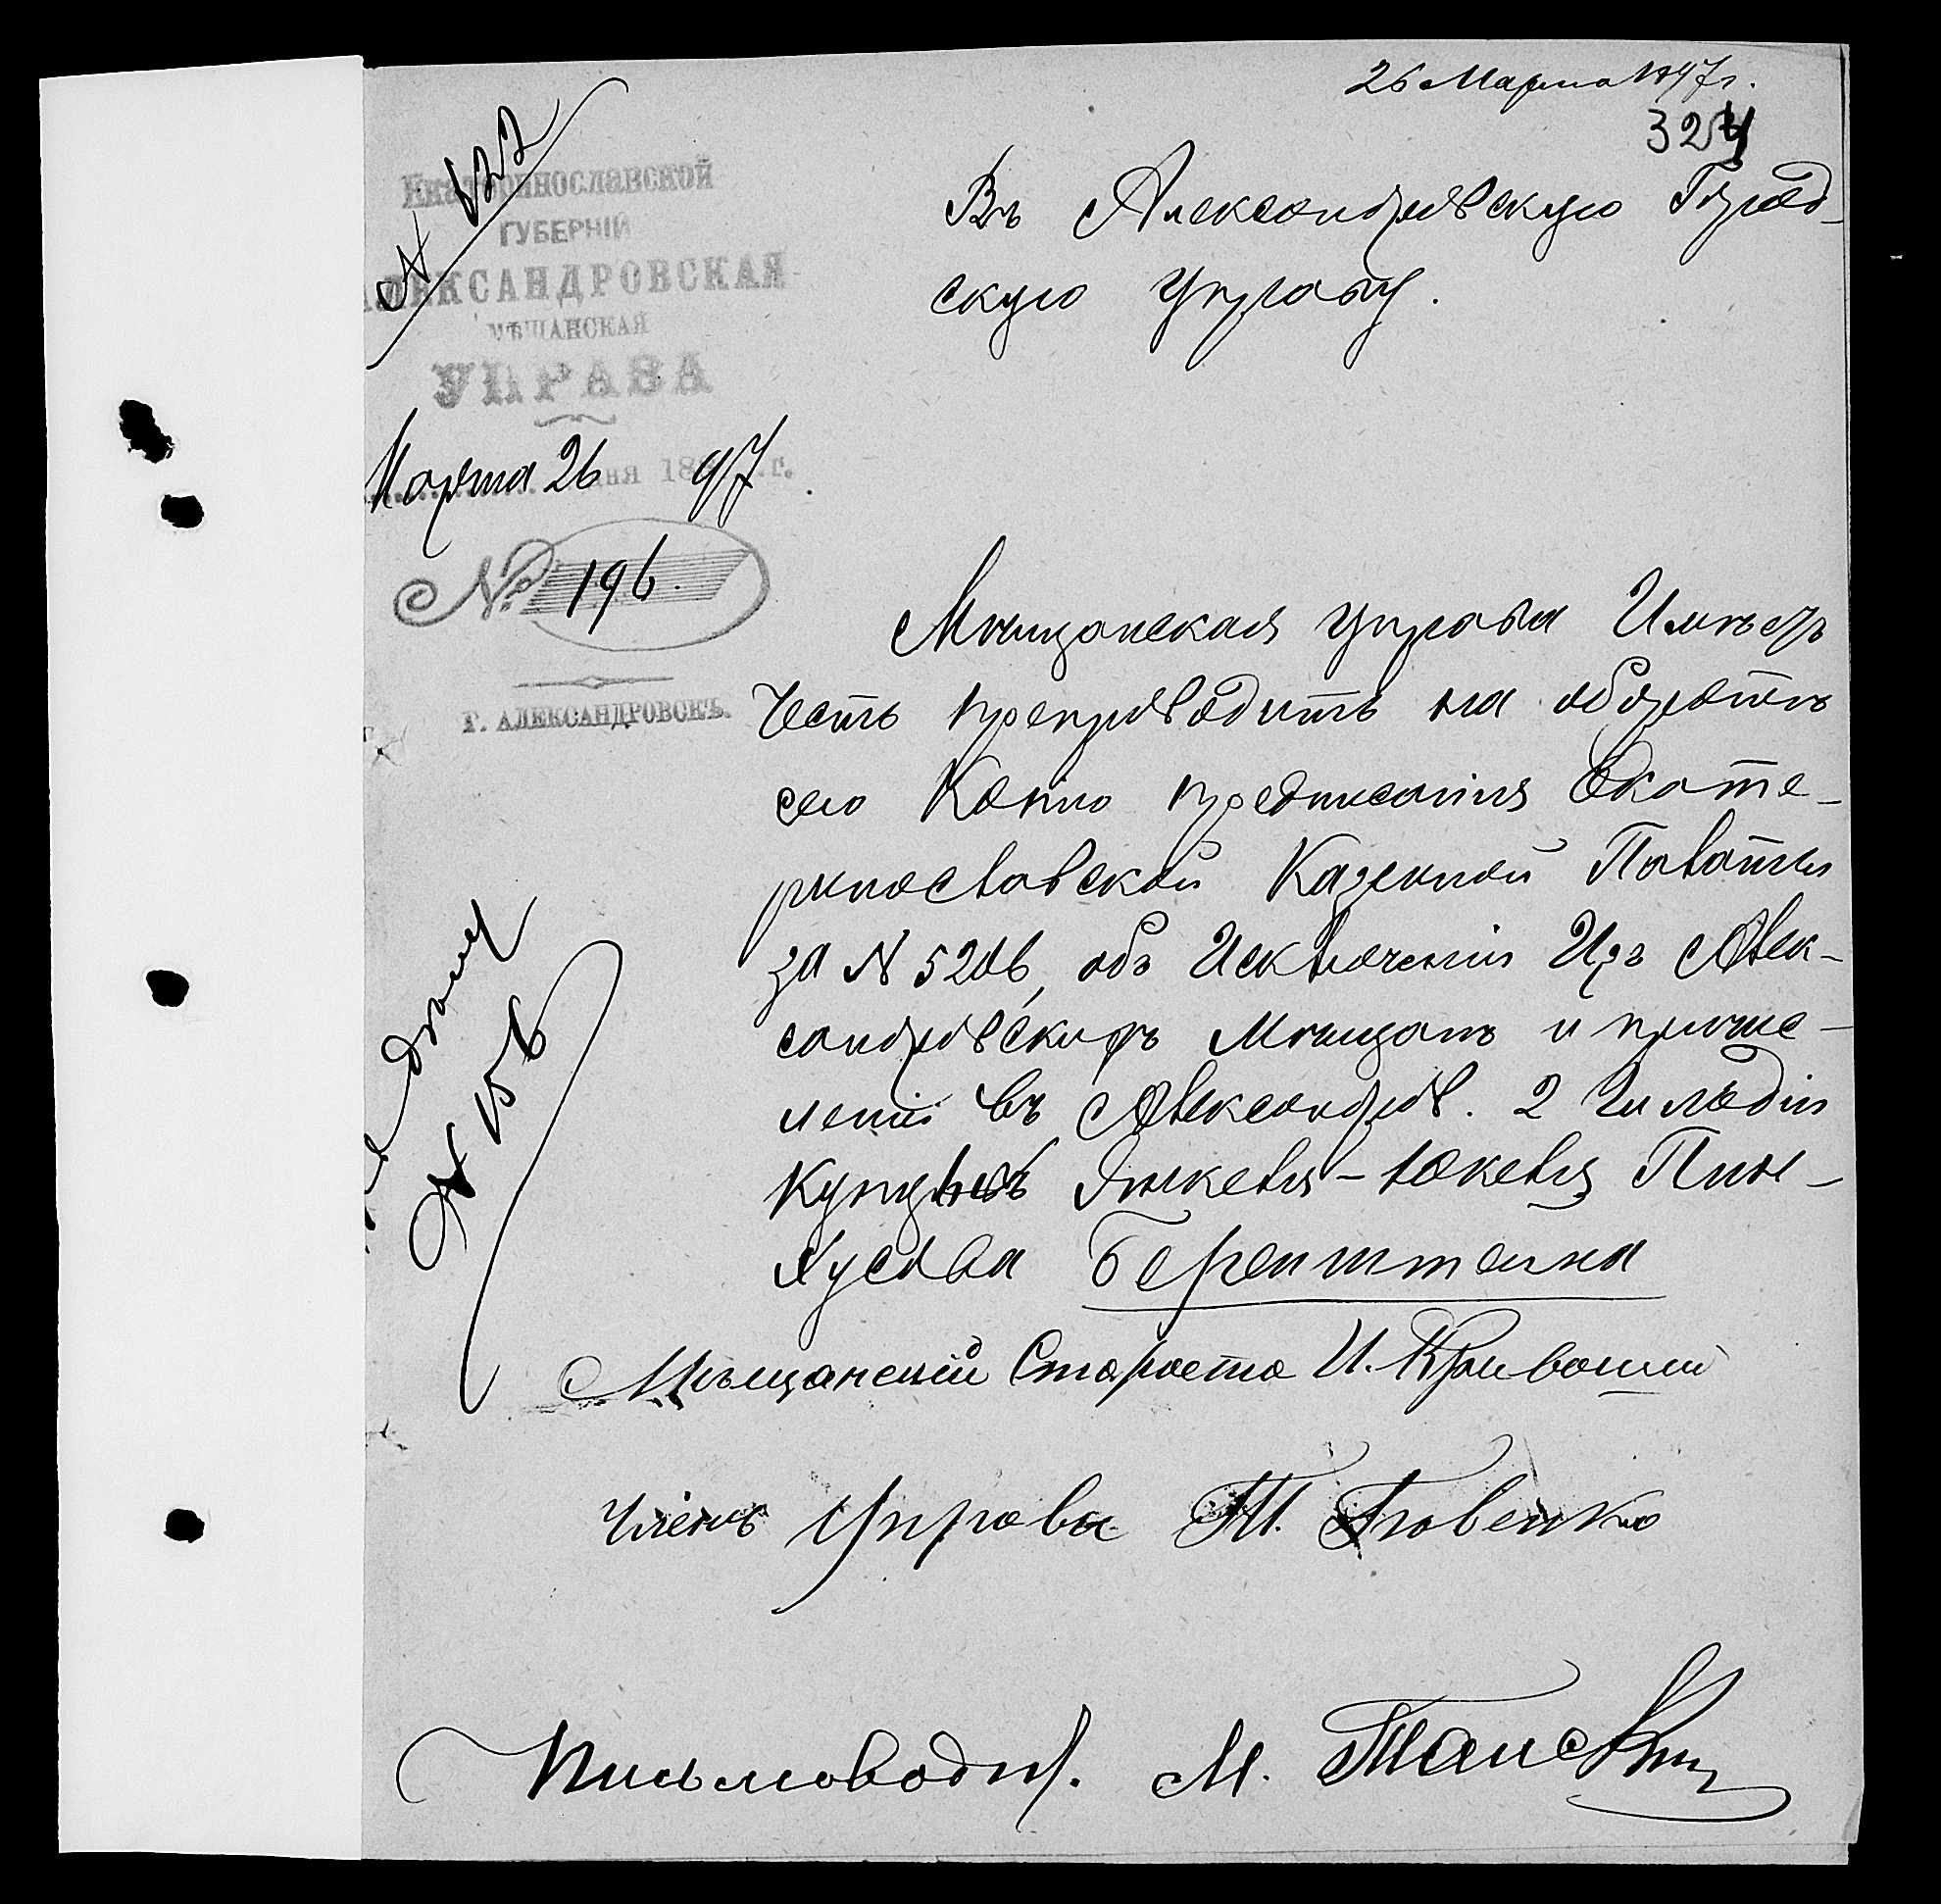 26 Марта 1897 г.
324
№ 822
Екатеринославской
ГУБЕРНІИ
АЛЕКСАНДРОВСКАЯ
МѢЩАНСКАЯ
УПРАВА
Марта 26 дня 1897 г.
№ 196.
Г. АЛЕКСАНДРОВСКЪ.
Въ Александровскую Город-
скую Управу.
Мѣщанская Управа Имѣетъ
Честь препроводить на оборотѣ
сего Копію предписанія Екате-
ринославской Казенной Палаты
за № 5206, объ Исключеніи Изъ Алек-
сандровскихъ Мѣщанъ и причис-
леніи въ Александров. 2 Гильдіи
Купцы Янкеля-Юкеля Пин-
хусова Беренштейна
къ дѣлу
№ 156
Мѣщанскій Староста И. Кривоший
Членъ Управы Т. Головенко
Письмовод.